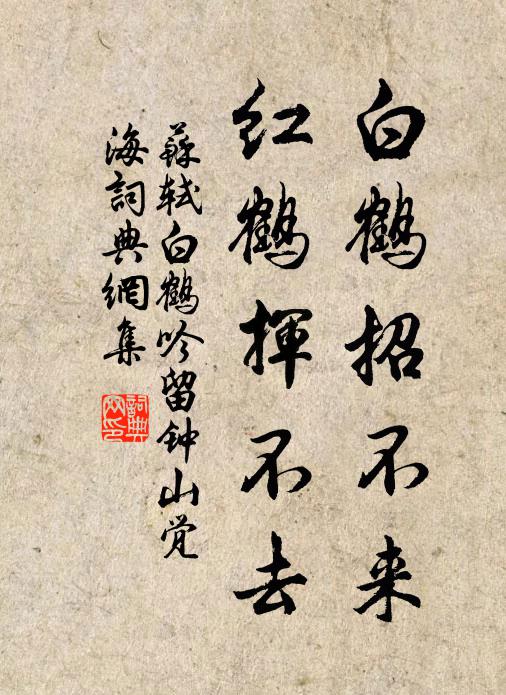 白鹤招不来
红鹤揮不去
蘇轼白鹤吟留钟山觉
海詞典網集
詞典网印